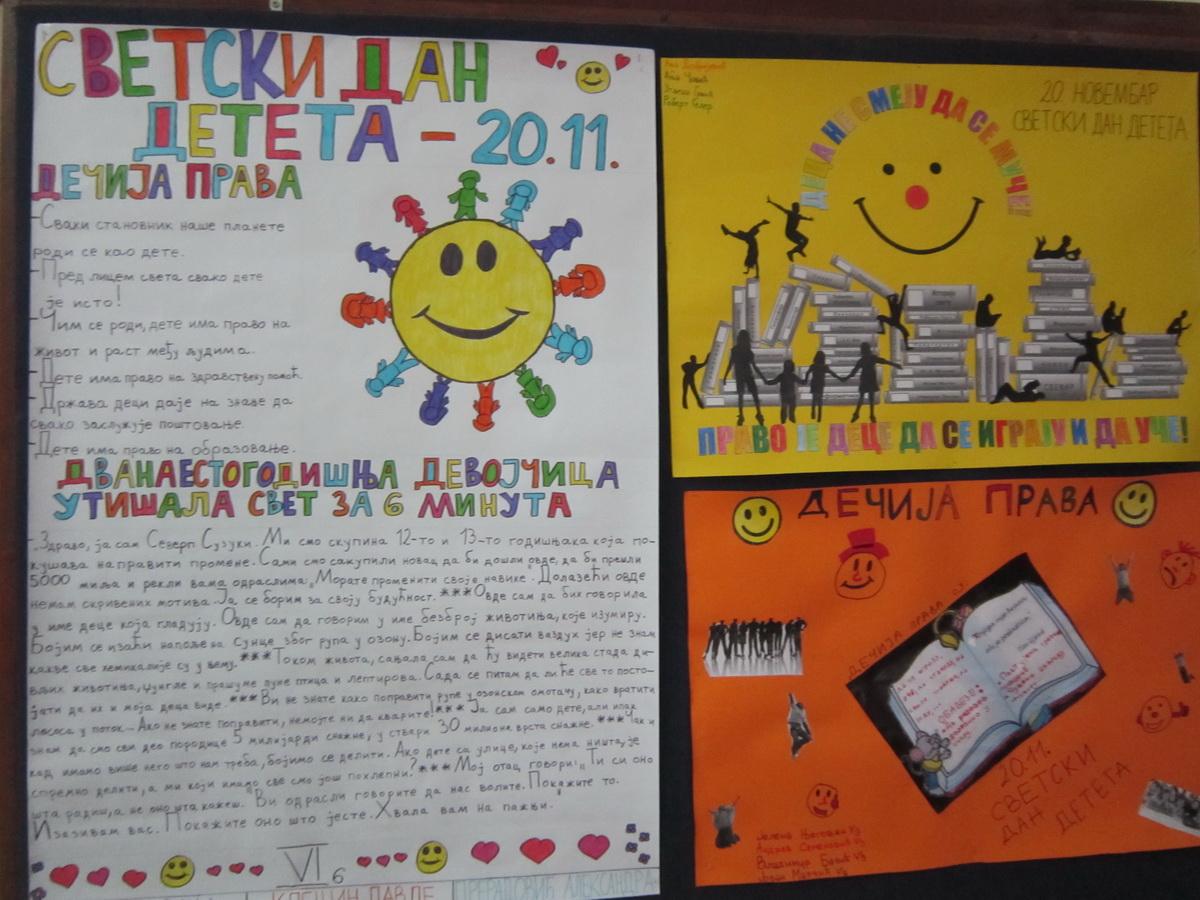 СВЕТСКИ ДАН
ДЕТЕТА - 20.11.
ДЕЧИЈА ПРАВА
-Сваки становник наше планете
роди се као дете.
-Пред лицем света свако дете
је исто!
-Чим се роди, дете има право на
живот и раст међу људима.
-Дете има право на здравствену помоћ.
-Држава деци даје на знање да
свако заслужује поштовање.
-Дете има право на образовање.
ДВАНАЕСТОГОДИШЊА ДЕВОЈЧИЦА
УТИШАЛА СВЕТ ЗА 6 МИНУТА
-„Здраво, ја сам Северн Сузуки. Ми смо скупина 12-то и 13-то годишњака која по-
кушава направити промене. Сами смо сакупили новац да би дошли овде, да би прешли
5000 миља и рекли вама одраслима „Морате променити своје навике". Долазећи овде
немам скривених мотива. Ја се борим за своју будућност. ***Овде сам да бих говорила
у име деце која гладују. Овде сам да говорим у име безброј животиња, које изумиру.
Бојим се изаћи напоље на сунце због рупа у озону. Бојим се дисати ваздух јер не знам
какве све хемикалије су у њему. ***Током живота, сањала сам да ћу видети велика стада ди-
вљих животиња, џунгле и прашуме пуне птица и лептирова. Сада се питам да ли ће све то посто-
јати да их и моја деца виде. ***Ви не знате како поправити рупе у озонском омотачу, како вратити
лососа у поток... Ако не знате поправити, немојте ни да кварите! ***Ја сам само дете, али ипак
знам да смо сви део породице 5 милијарди снажне, у ствари 30 милиона врста снажне. ***Чак и
кад имамо више него што нам треба, бојимо се делити. Ако дете са улице, које нема ништа, је
спремно делити, а ми који имамо све смо још похлепни? ***Мој отац говори: „Ти си оно
шта радиш, а не оно шта кажеш." Ви одрасли говорите да нас волите. Покажите то.
Изазивам вас. Покажите оно што јесте. Хвала вам на пажњи."
VI 6
ПРЕРАДОВИЋ АЛЕКСАНДРА
ДЕЦА НЕ СМЕЈУ ДА СЕ МУЧЕ
20. НОВЕМБАР
СВЕТСКИ ДАН ДЕТЕТА
ПРАВО ЈЕ ДЕЦЕ ДА СЕ ИГРАЈУ И ДА УЧЕ!
ДЕЧИЈА ПРАВА
ДЕЧИЈА ПРАВА
ОБАВЕЗЕ
20.11.
СВЕТСКИ
ДАН
ДЕТЕТА